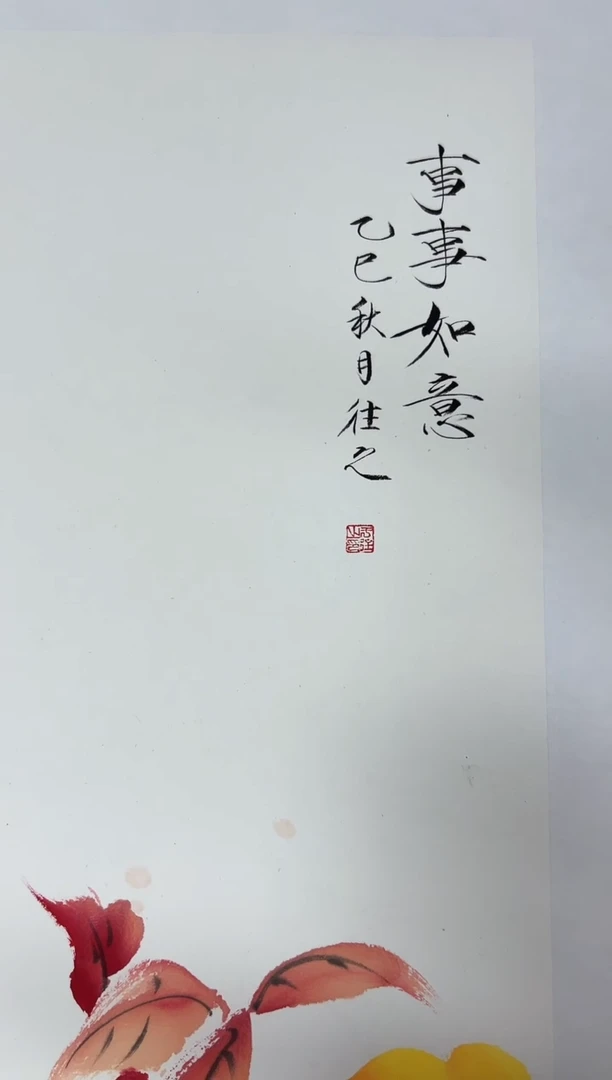 事事如意
乙巳秋月往之